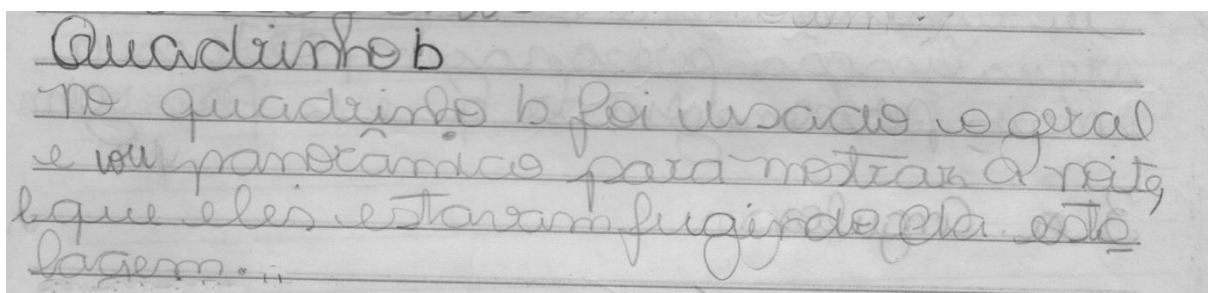 Quadrinho b
no quadrinho b foi usado o geral
e ou panorâmico para mostrar a noite,
e que eles estavam fugindo da esta
lagem...